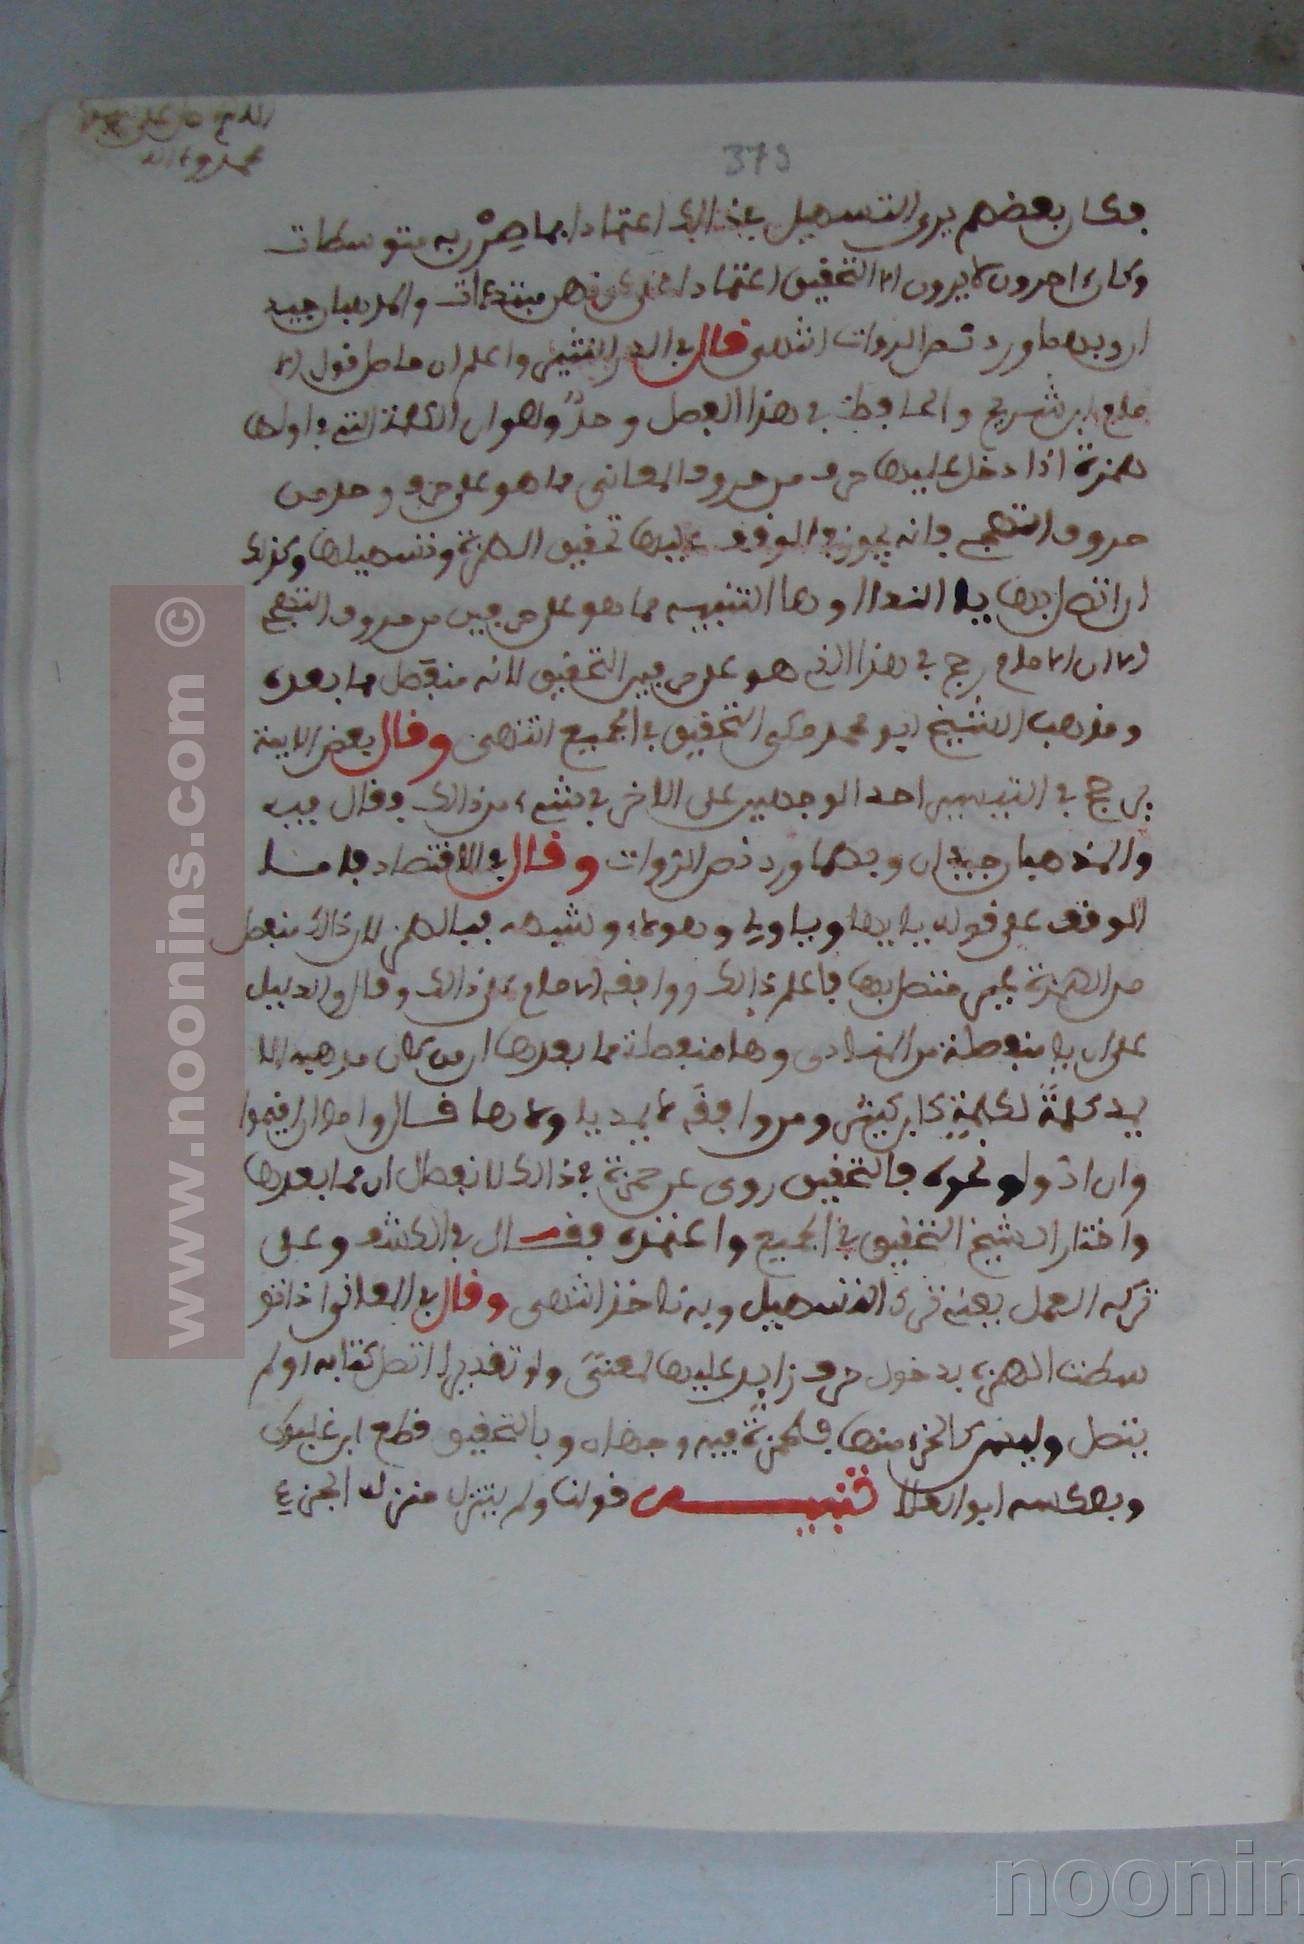 379
فكان بعضهم يرى التسهيل في ذالك اعتمادا بما صرن به متوسطات
وكان اخرون لا يرون الا التحقيق اعتمادا على كونهن مبتدءات والمذهبان جيدان
وبهما ورد نص الروات انتهى قال في الدر النثير واعلم ان حاصل قول الا
مام ابن شريح والحافظ في هذا الفصل وهو ان الكلمة التي في اولها
همزة اذا دخل عليها حرف من حروف المعاني مما هو على حرف وحد من
حروف التهجي فانه يجوز في الوقف عليها تحقيق الهمزة وتسهيلها وكذالك
ان اتصل بها يا الندا او ها التنبيه مما هو على حرفين من حروف التهجي
الا ان الامام رجح في هذا الذي هو على حرفين التحقيق لانه منفصل مما بعده
ومذهب الشيخ ابو محمد مكي التحقيق في الجميع انتهى وقال بعض الايمة
يرجح في التيسير احد الوجهين على الاخر في شيء من ذالك فقال فيه
والمذهبان جيدان وبهما ورد نص الروات وقال في الاقتصاد فاما
الوقف على قوله يايها وياولي وهولاء وشبهه فبالهمز لان ذالك منفصل
من الهمزة غير متصل بها فاعلم ذالك ووافقه الامام على ذالك وقال والدليل
على ان يا منفصلة من المنادى وها منفصلة مما بعدها ان من كان مذهبه الا
يمد كلمة لكلمة كابن كثير ومن وافقه لا يمد يا ولا ها قال واما ان اقيموا
وان ادوا ونحوه فالتحقيق روى عن حمزة في ذالك لانفصال ان مما بعدها
واختار الشيخ التحقيق في الجميع واعتمده فقال في الكشف وعلى
تركه العمل يعني ترك التسهيل وبه ناخذ انتهى وقال في المعاني اذا تو
سطت الهمزة بدخول حرف زايد عليها لمعنى ولو تقديرا اتصل كتابة او لم
يتصل وليس كالجزء منها فحمزة فيه وجهان وبالتحقيق قطع ابن غلبون
وبعكسه ابو العلا تنبيه قولنا ولم يتنزل منزلة الجزء
www.noonins.com ©
noonin